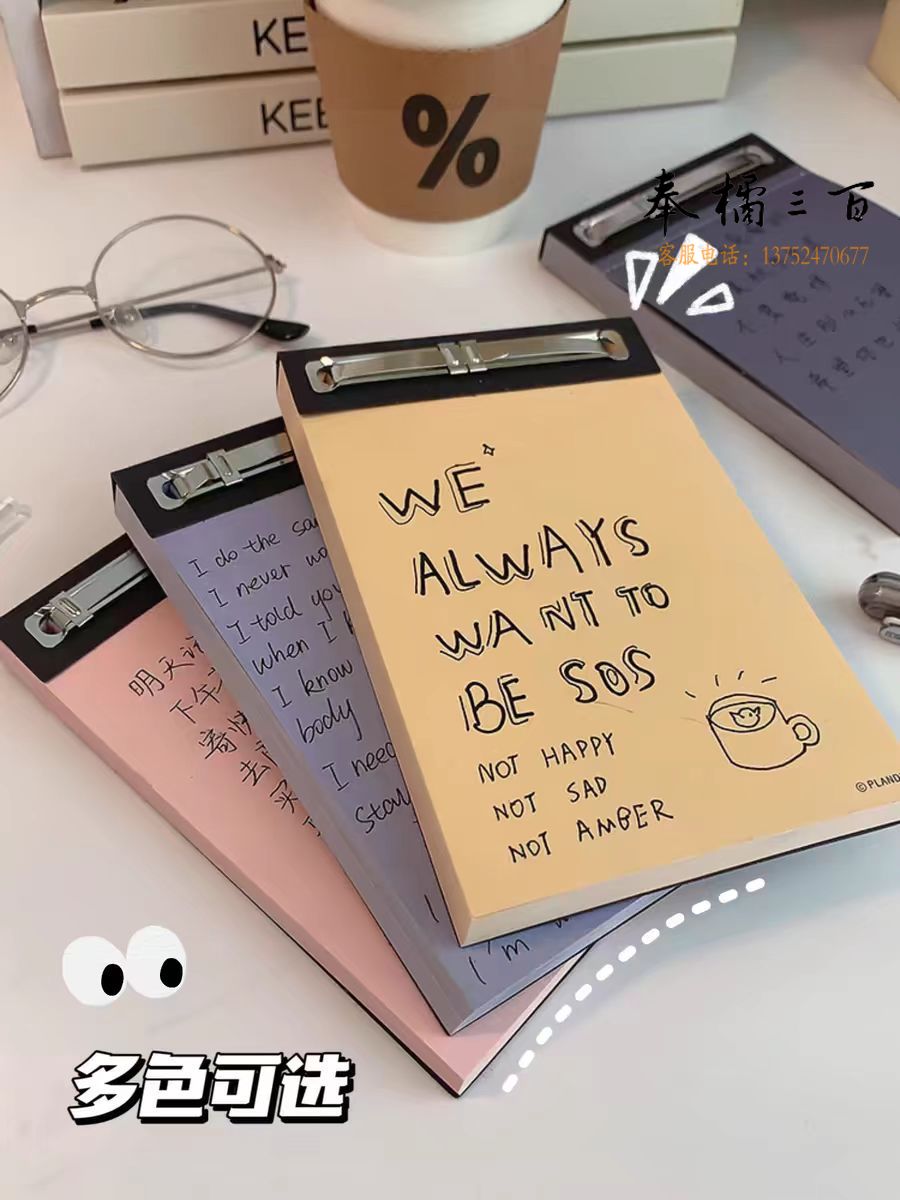 KE
KEE
%
奉橘三百
客服电话：13752470677
WE
ALWAYS
WANT TO
BE SOS
NOT HAPPY
NOT SAD
NOT AMBER
©PLAND
I do the sa
I never wo
I told you
when I h
I know
body
I need
Stay
I
I'm
明天
下午
寄快
去
买
多色可选